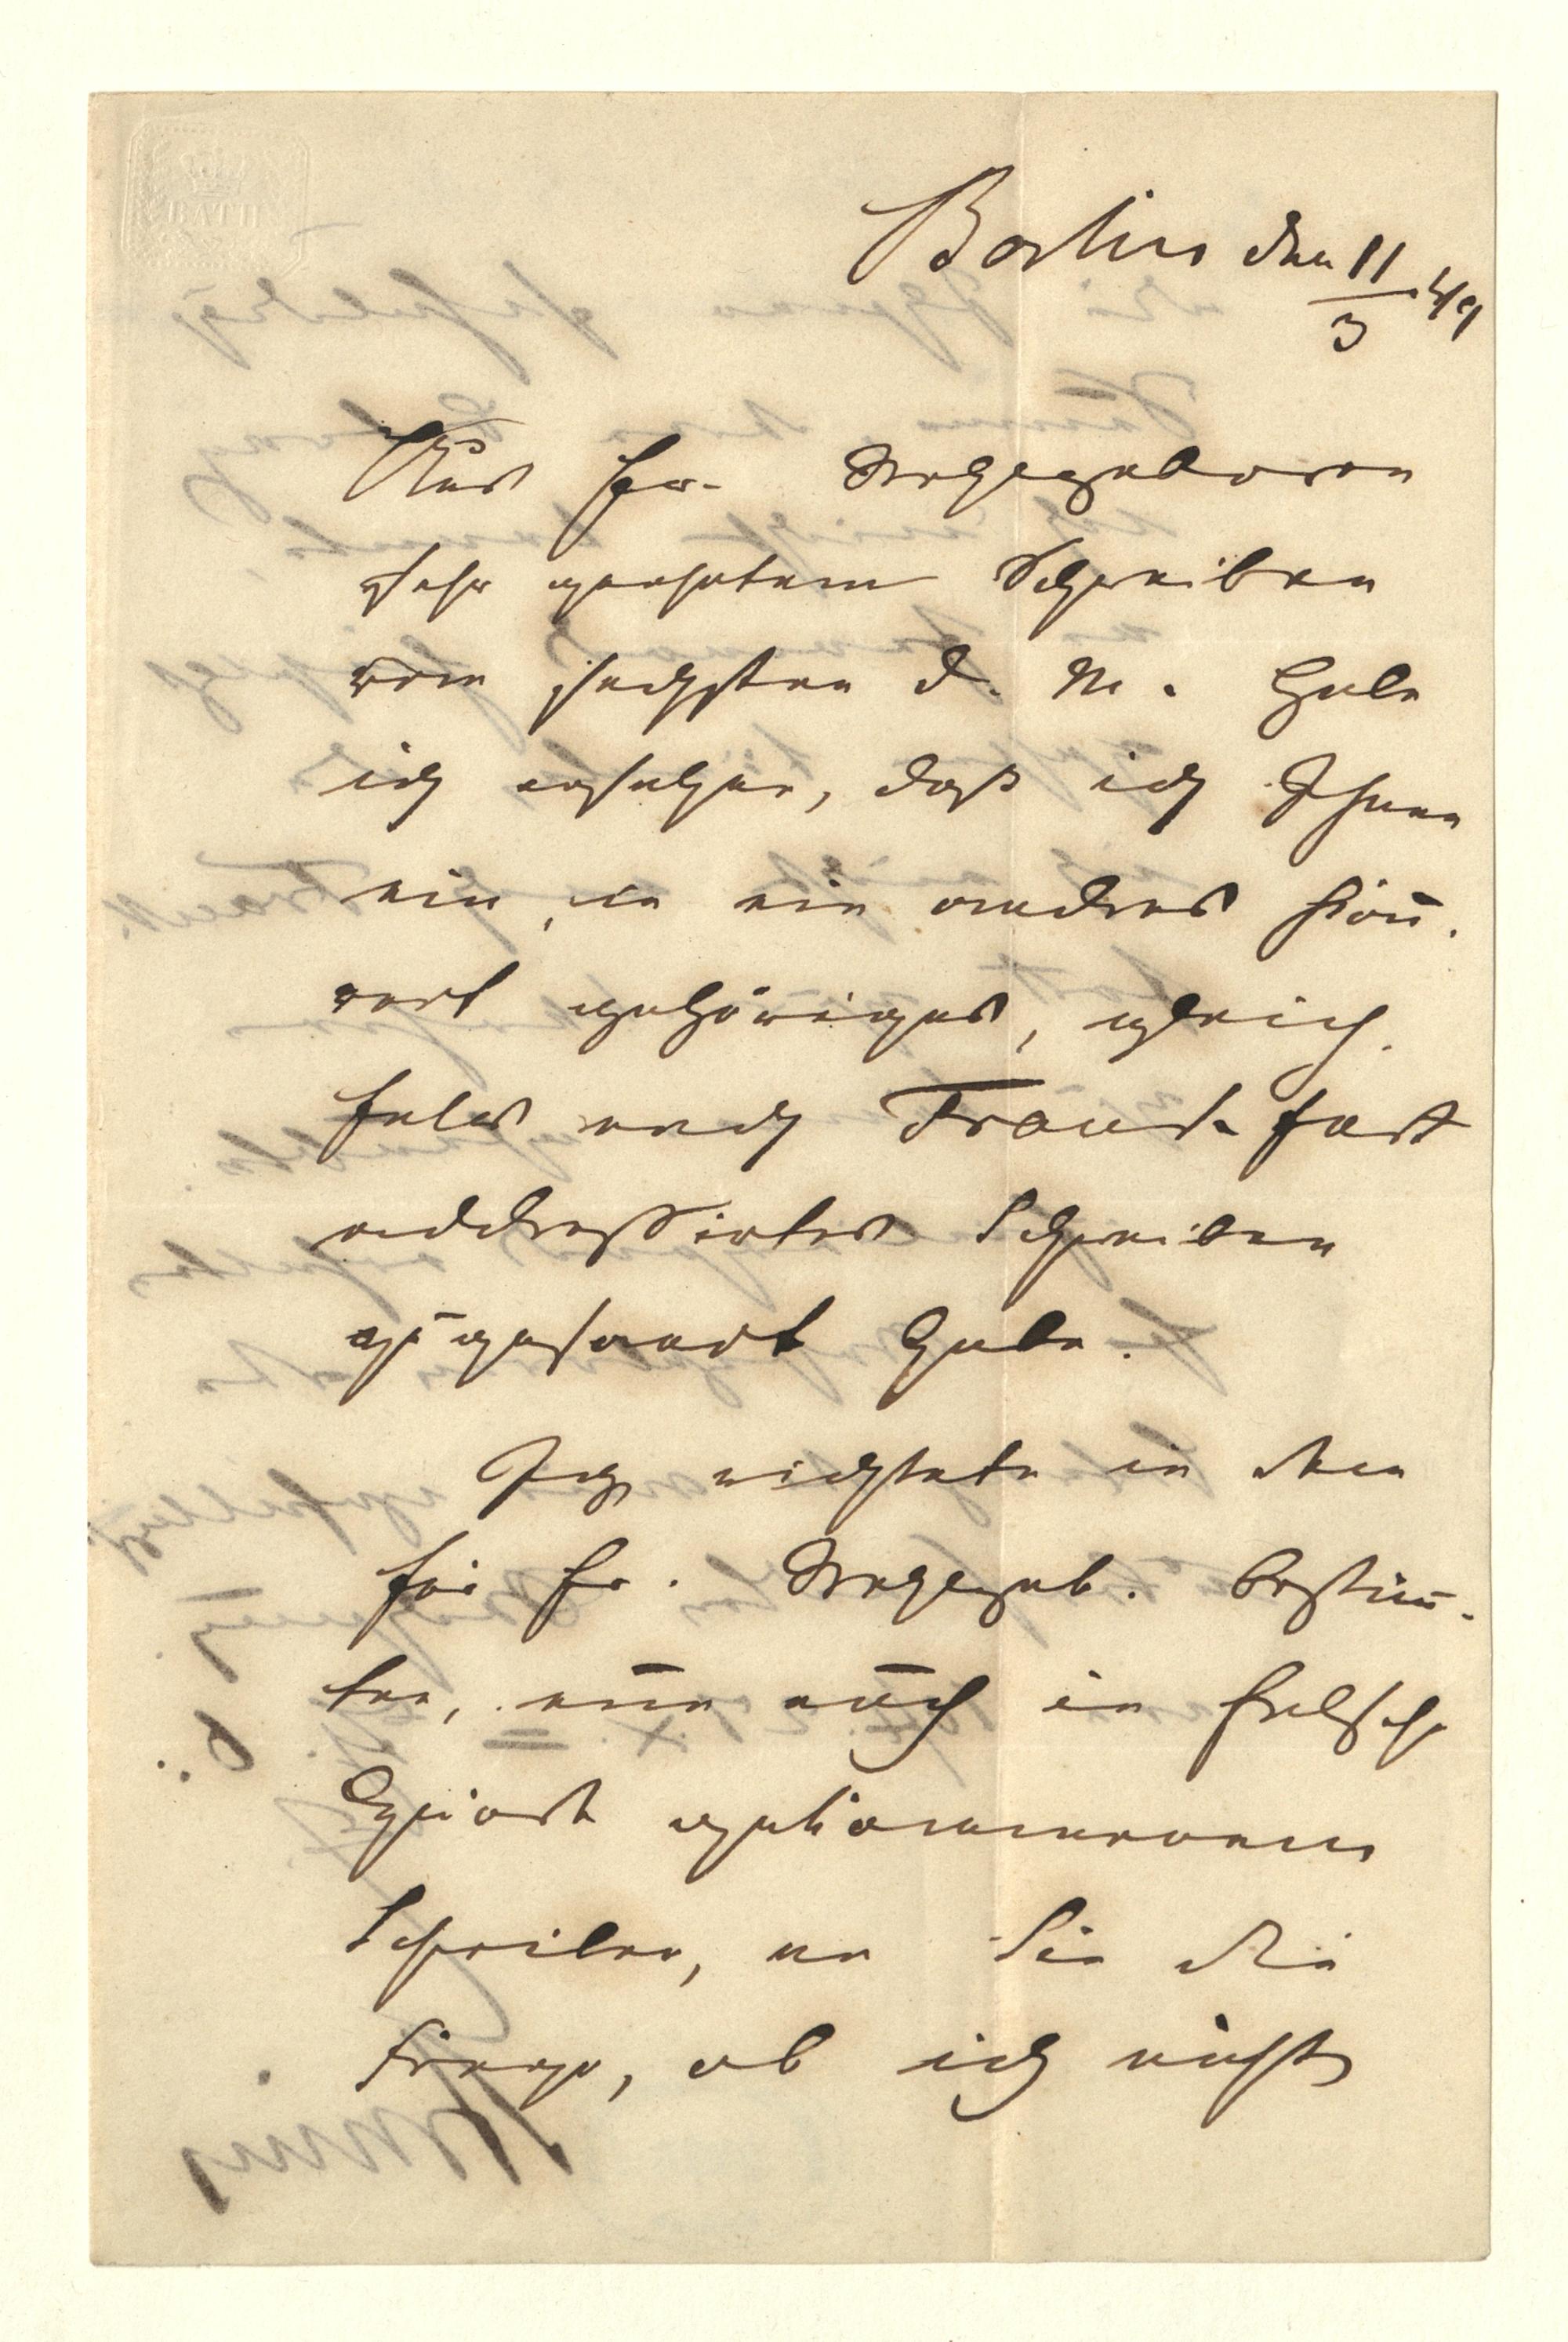 BATH
Berlin den 11/3 49
Aus Ew. Wohlgeboren
sehr geehrtem Schreiben
vom sechsten d. M. habe
ich ersehen, daß ich Ihnen
ein, in ein andres Kou-
vert gehöriges, gleich-
falls nach Frankfurt
addressirtes Schreiben
zugesandt habe.
Ich richtete in dem
für Ew. Wohlgeb. bestim̄-
ten, nun auch in falsche
gekommenen
Schreiben, an Sie die
Frage, ob ich nicht